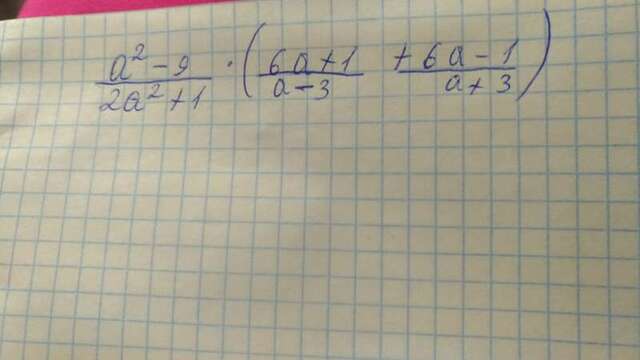 (a² - 9)/(2a² + 1) · ((6a + 1)/(a - 3) + (6a - 1)/(a + 3))